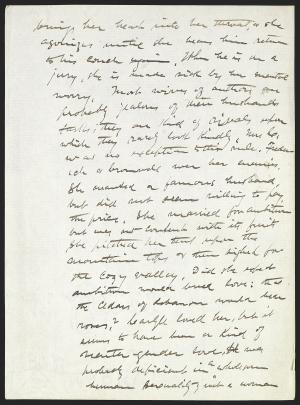 brings her heart into her throat, & she
agonizes until she hears him return
to his couch again. When he is in a
fury, she is made sick by her mental
worry. Most wives of authors are
probably jealous of their husbands
tasks; they are kind of rivals upon
which they rarely look kindly. Mrs. C.
was no exception to this rule.
over her enemies.
She wanted a famous husband,
but did not seem willing to pay
the price. She married for ambition
but was not content with its fruit
She pitched her tent upon the
mountain top & then sighed for
the cozy valley. Did she expect
ambition would breed love: that
the Cedars of Lebanon would bear
roses? C. loved her, but it
seems to have been a kind of
gender love. He was
probably deficient in "wholesome
human sensuality" & in it a woman